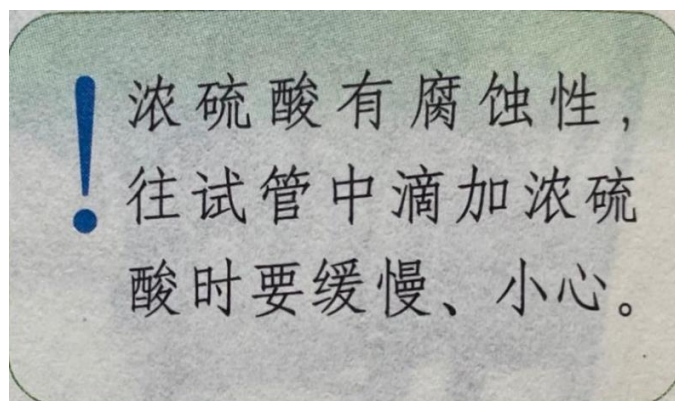 ! 浓硫酸有腐蚀性，
往试管中滴加浓硫
酸时要缓慢、小心。